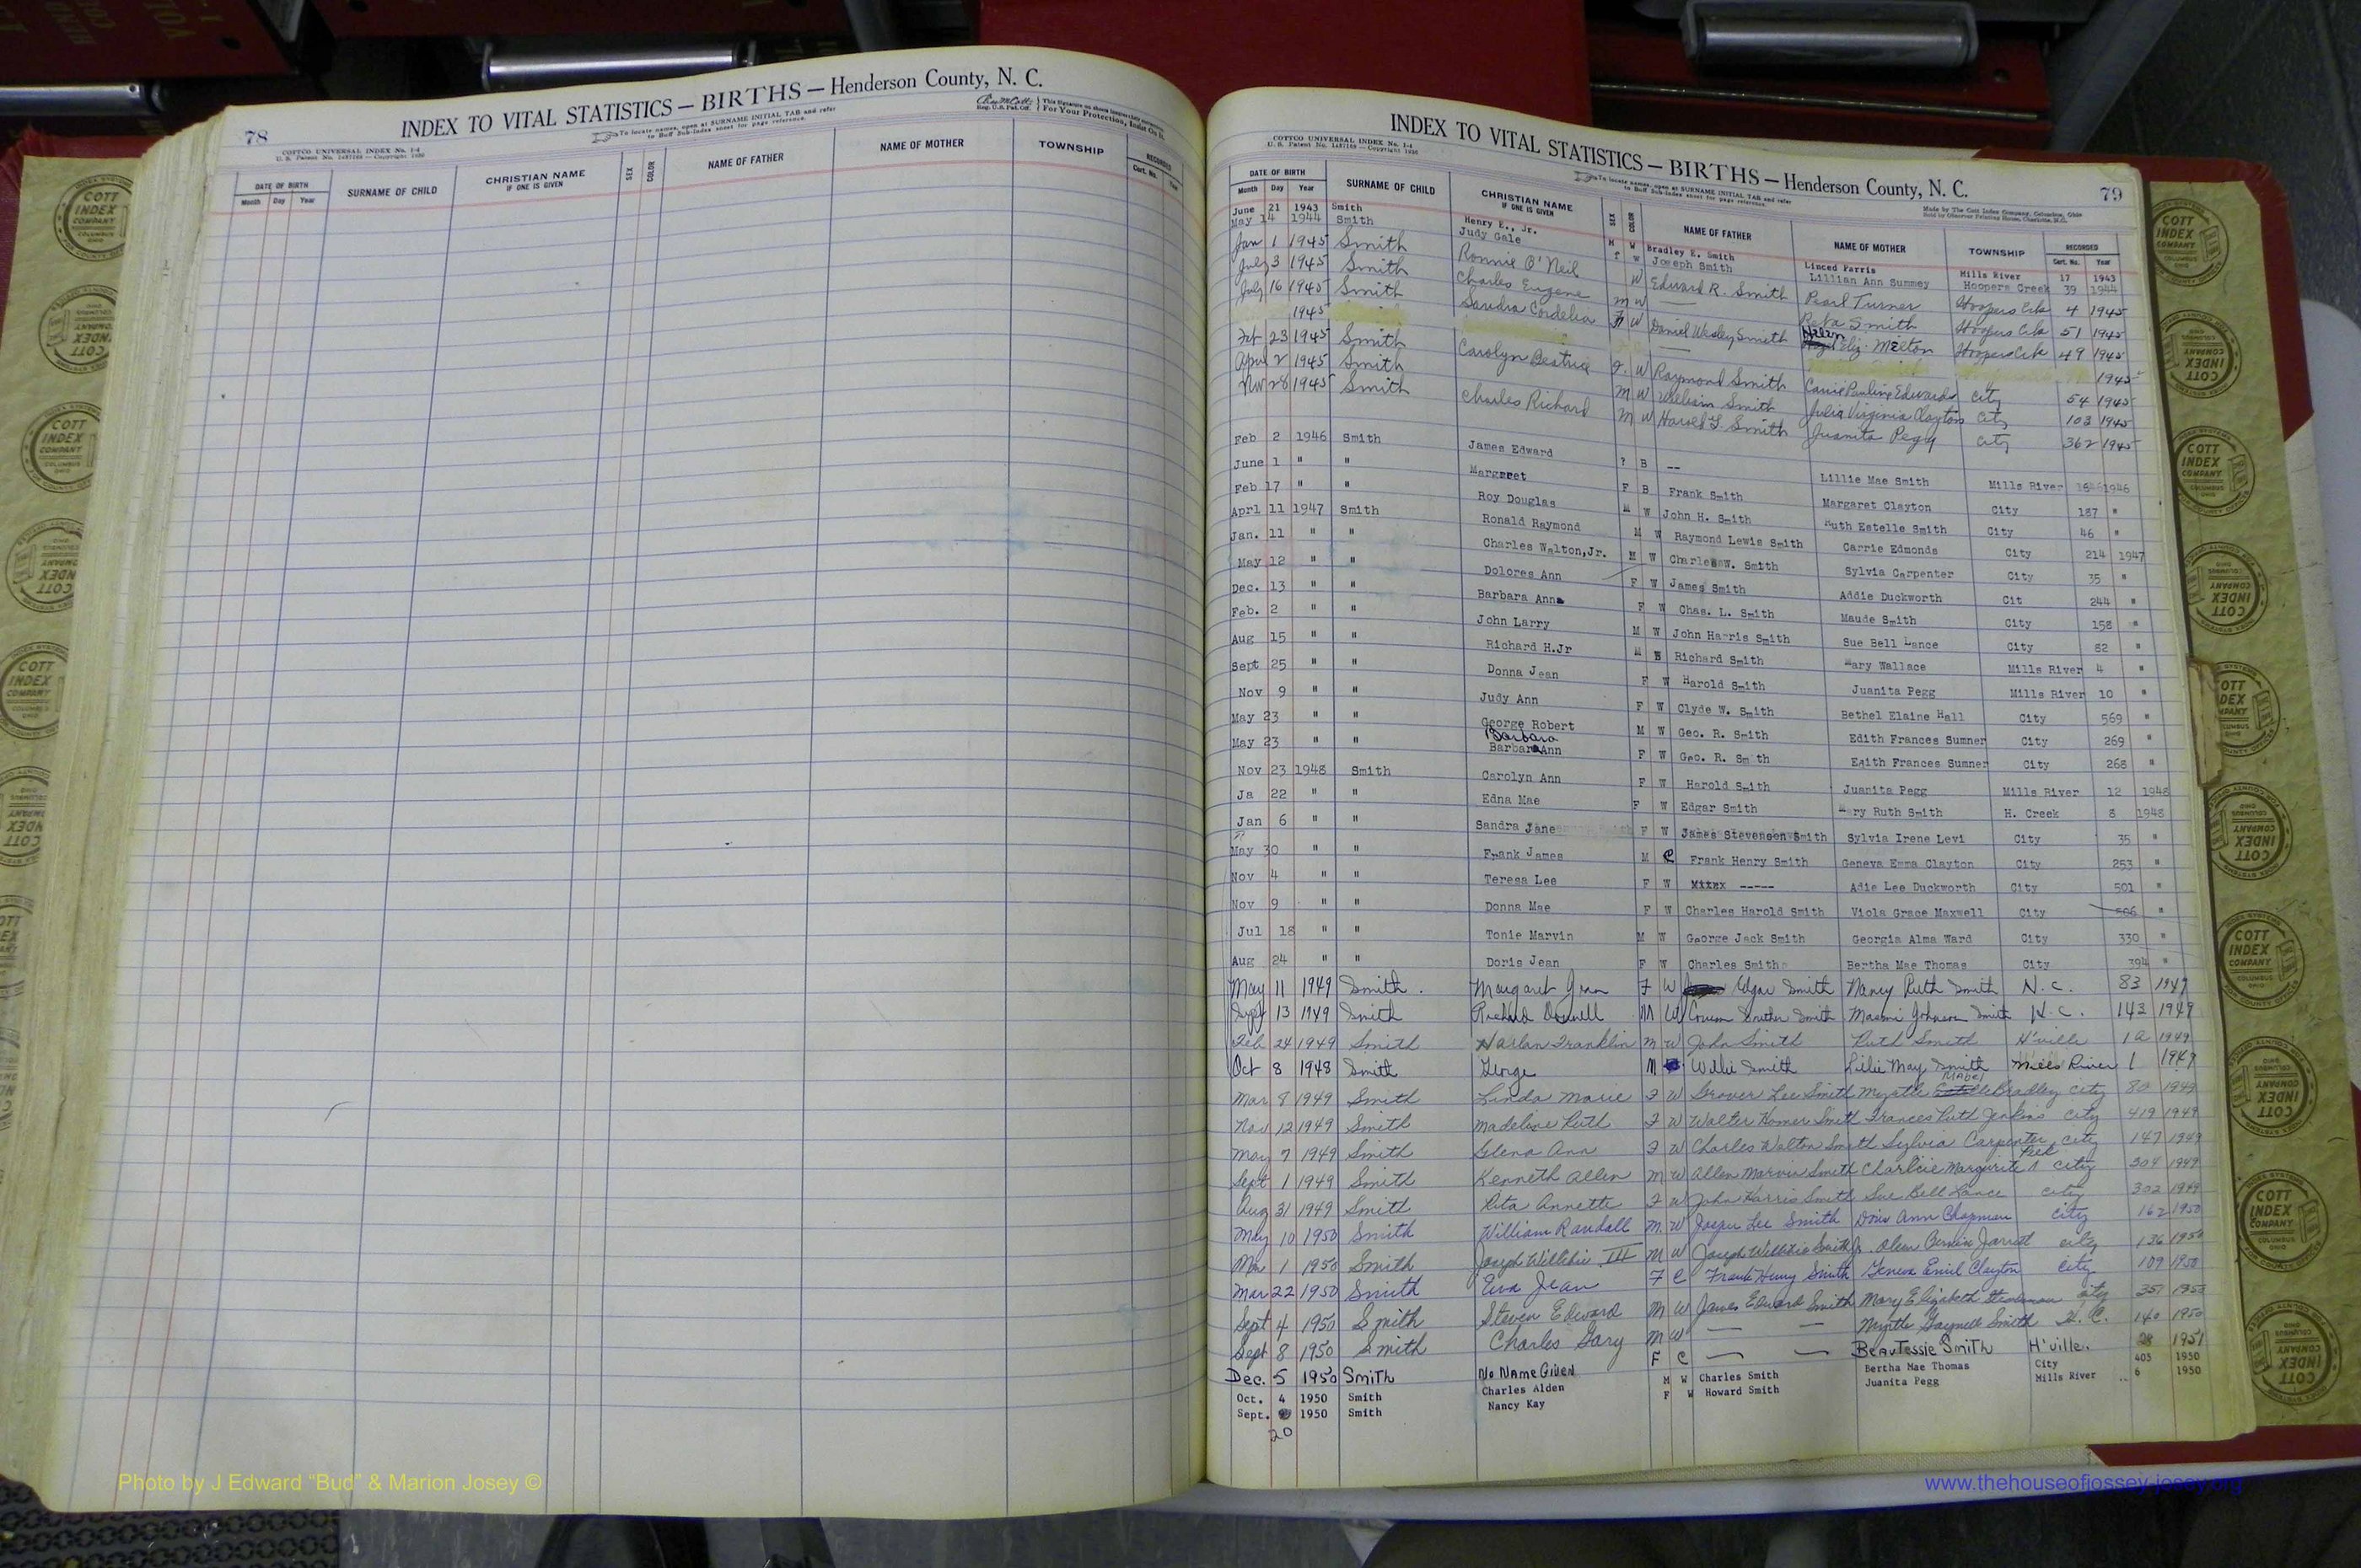 78
INDEX TO VITAL STATISTICS — BIRTHS — Henderson County, N. C.
COTTCO UNIVERSAL INDEX No. 1-4
To locate names, open at SURNAME INITIAL TAB and refer
to Buff Sub-Index sheet for page reference.
For Your Protection, Insist On It.
DATE OF BIRTH
Month Day Year
SURNAME OF CHILD
CHRISTIAN NAME
IF ONE IS GIVEN
SEX
COLOR
NAME OF FATHER
NAME OF MOTHER
TOWNSHIP
RECORDED
Cert. No.
INDEX TO VITAL STATISTICS — BIRTHS — Henderson County, N. C.
79
COTTCO UNIVERSAL INDEX No. 1-4
To locate names, open at SURNAME INITIAL TAB and refer
to Buff Sub-Index sheet for page reference.
Made by The Cott Index Company, Columbus, Ohio
DATE OF BIRTH
Month Day Year
SURNAME OF CHILD
CHRISTIAN NAME
IF ONE IS GIVEN
SEX
COLOR
NAME OF FATHER
NAME OF MOTHER
TOWNSHIP
RECORDED
Cert. No. Year
June 21 1943 Smith Henry E., Jr. M W Bradley E. Smith Linced Parris Mills River 17 1943
May 14 1944 Smith Judy Gale f w Joseph Smith Lillian Ann Summey Hoopers Creek 39 1944
Jan 1 1945 Smith Ronnie O'Neil W Edward R. Smith Pearl Turner Hoopers Crk 4 1945
July 3 1945 Smith Charles Eugene m w — Reba Smith Hoopers Crk 51 1945
July 16 1945 Smith Sandra Cordelia F W Daniel Wesley Smith Helen Eliz. Melton Hoopers Crk 49 1945
1945 1945
Feb 23 1945 Smith Carolyn Beatrice F. W Raymond Smith Carrie Pauline Edwards City 54 1945
April 2 1945 Smith M W William Smith Julia Virginia Clayton City 103 1945
Nov 28 1945 Smith Charles Richard M W Harold T. Smith Juanita Pegg City 362 1945
Feb 2 1946 Smith James Edward ? B -- Lillie Mae Smith Mills River 1946
June 1 " " Margaret F B Frank Smith Margaret Clayton City 187 "
Feb 17 " " Roy Douglas M W John H. Smith Ruth Estelle Smith City 46 "
Aprl 11 1947 Smith Ronald Raymond M W Raymond Lewis Smith Carrie Edmonds City 214 1947
Jan. 11 " " Charles Walton, Jr. M W Charles W. Smith Sylvia Carpenter City 35 "
May 12 " " Dolores Ann F W James Smith Addie Duckworth Cit 244 "
Dec. 13 " " Barbara Anna F W Chas. L. Smith Maude Smith City 158 "
Feb. 2 " " John Larry M W John Harris Smith Sue Bell Lance City 82 "
Aug 15 " " Richard H.Jr M B Richard Smith Mary Wallace Mills River 4 "
Sept 25 " " Donna Jean F W Harold Smith Juanita Pegg Mills River 10 "
Nov 9 " " Judy Ann F W Clyde W. Smith Bethel Elaine Hall City 569 "
May 23 " " George Robert M W Geo. R. Smith Edith Frances Sumner City 269 "
May 23 " " Barbara Barbara Ann F W Geo. R. Smith Edith Frances Sumner City 268 "
Nov 23 1948 Smith Carolyn Ann F W Harold Smith Juanita Pegg Mills River 12 1948
Ja 22 " " Edna Mae F W Edgar Smith Mary Ruth Smith H. Creek 8 1948
Jan 6 " " Sandra Jane F W James Stevenson Smith Sylvia Irene Levi City 35 "
May 30 " " Frank James M C Frank Henry Smith Geneva Emma Clayton City 253 "
Nov 4 " " Teresa Lee F W ----- Adie Lee Duckworth City 501 "
Nov 9 " " Donna Mae F W Charles Harold Smith Viola Grace Maxwell City 506 "
Jul 18 " " Tonie Marvin M W George Jack Smith Georgia Alma Ward City 330 "
Aug 24 " " Doris Jean F W Charles Smith Bertha Mae Thomas City 394 "
May 11 1949 Smith Margaret Jean F W Edgar Smith Nancy Ruth Smith N.C. 83 1949
Sept 13 1949 Smith Richard Donnell M W Smith Smith H.C. 143 1949
Feb 24 1949 Smith Harlan Franklin m w John Smith Ruth Smith H'ville 1a 1949
Oct 8 1948 Smith George M Willie Smith Lillie May Smith Mills River 1 1949
Mar 8 1949 Smith Linda Marie F W Grover Lee Smith Myrtle Mabel Bradley City 80 1949
Nov 12 1949 Smith Madeline Ruth F W Walter Homer Smith Frances Ruth Jenkins City 419 1949
May 7 1949 Smith Glena Ann F W Charles Walton Smith Sylvia Carpenter City 147 1949
Sept 1 1949 Smith Kenneth Allen M W Allen Marvin Smith Charlcie Margurite City 304 1949
Aug 31 1949 Smith Rita Annette F W John Harris Smith Sue Bell Lance City 302 1949
May 10 1950 Smith William Randall M. W Lee Smith Doris Ann Chapman City 162 1950
1 1950 Smith Joseph Willikie III M W Joseph Willikie Smith Jr. Jarrett City 136 1950
Mar 22 1950 Smith Eva Jean F C Frank Henry Smith Clayton City 109 1950
Sept 4 1950 Smith Steven Edward M W James Edward Smith Mary Elizabeth City 351 1950
Sept 8 1950 Smith Charles Gary M W — — Myrtle Smith H.C. 140 1950
Dec. 5 1950 Smith No Name Given F C — — Beautessie Smith H'ville. 28 1951
Oct. 4 1950 Smith Charles Alden M W Charles Smith Bertha Mae Thomas City 405 1950
Sept. 20 1950 Smith Nancy Kay F W Howard Smith Juanita Pegg Mills River 6 1950
Photo by J Edward "Bud" & Marion Josey ©
www.thehouseofjossey-josey.org